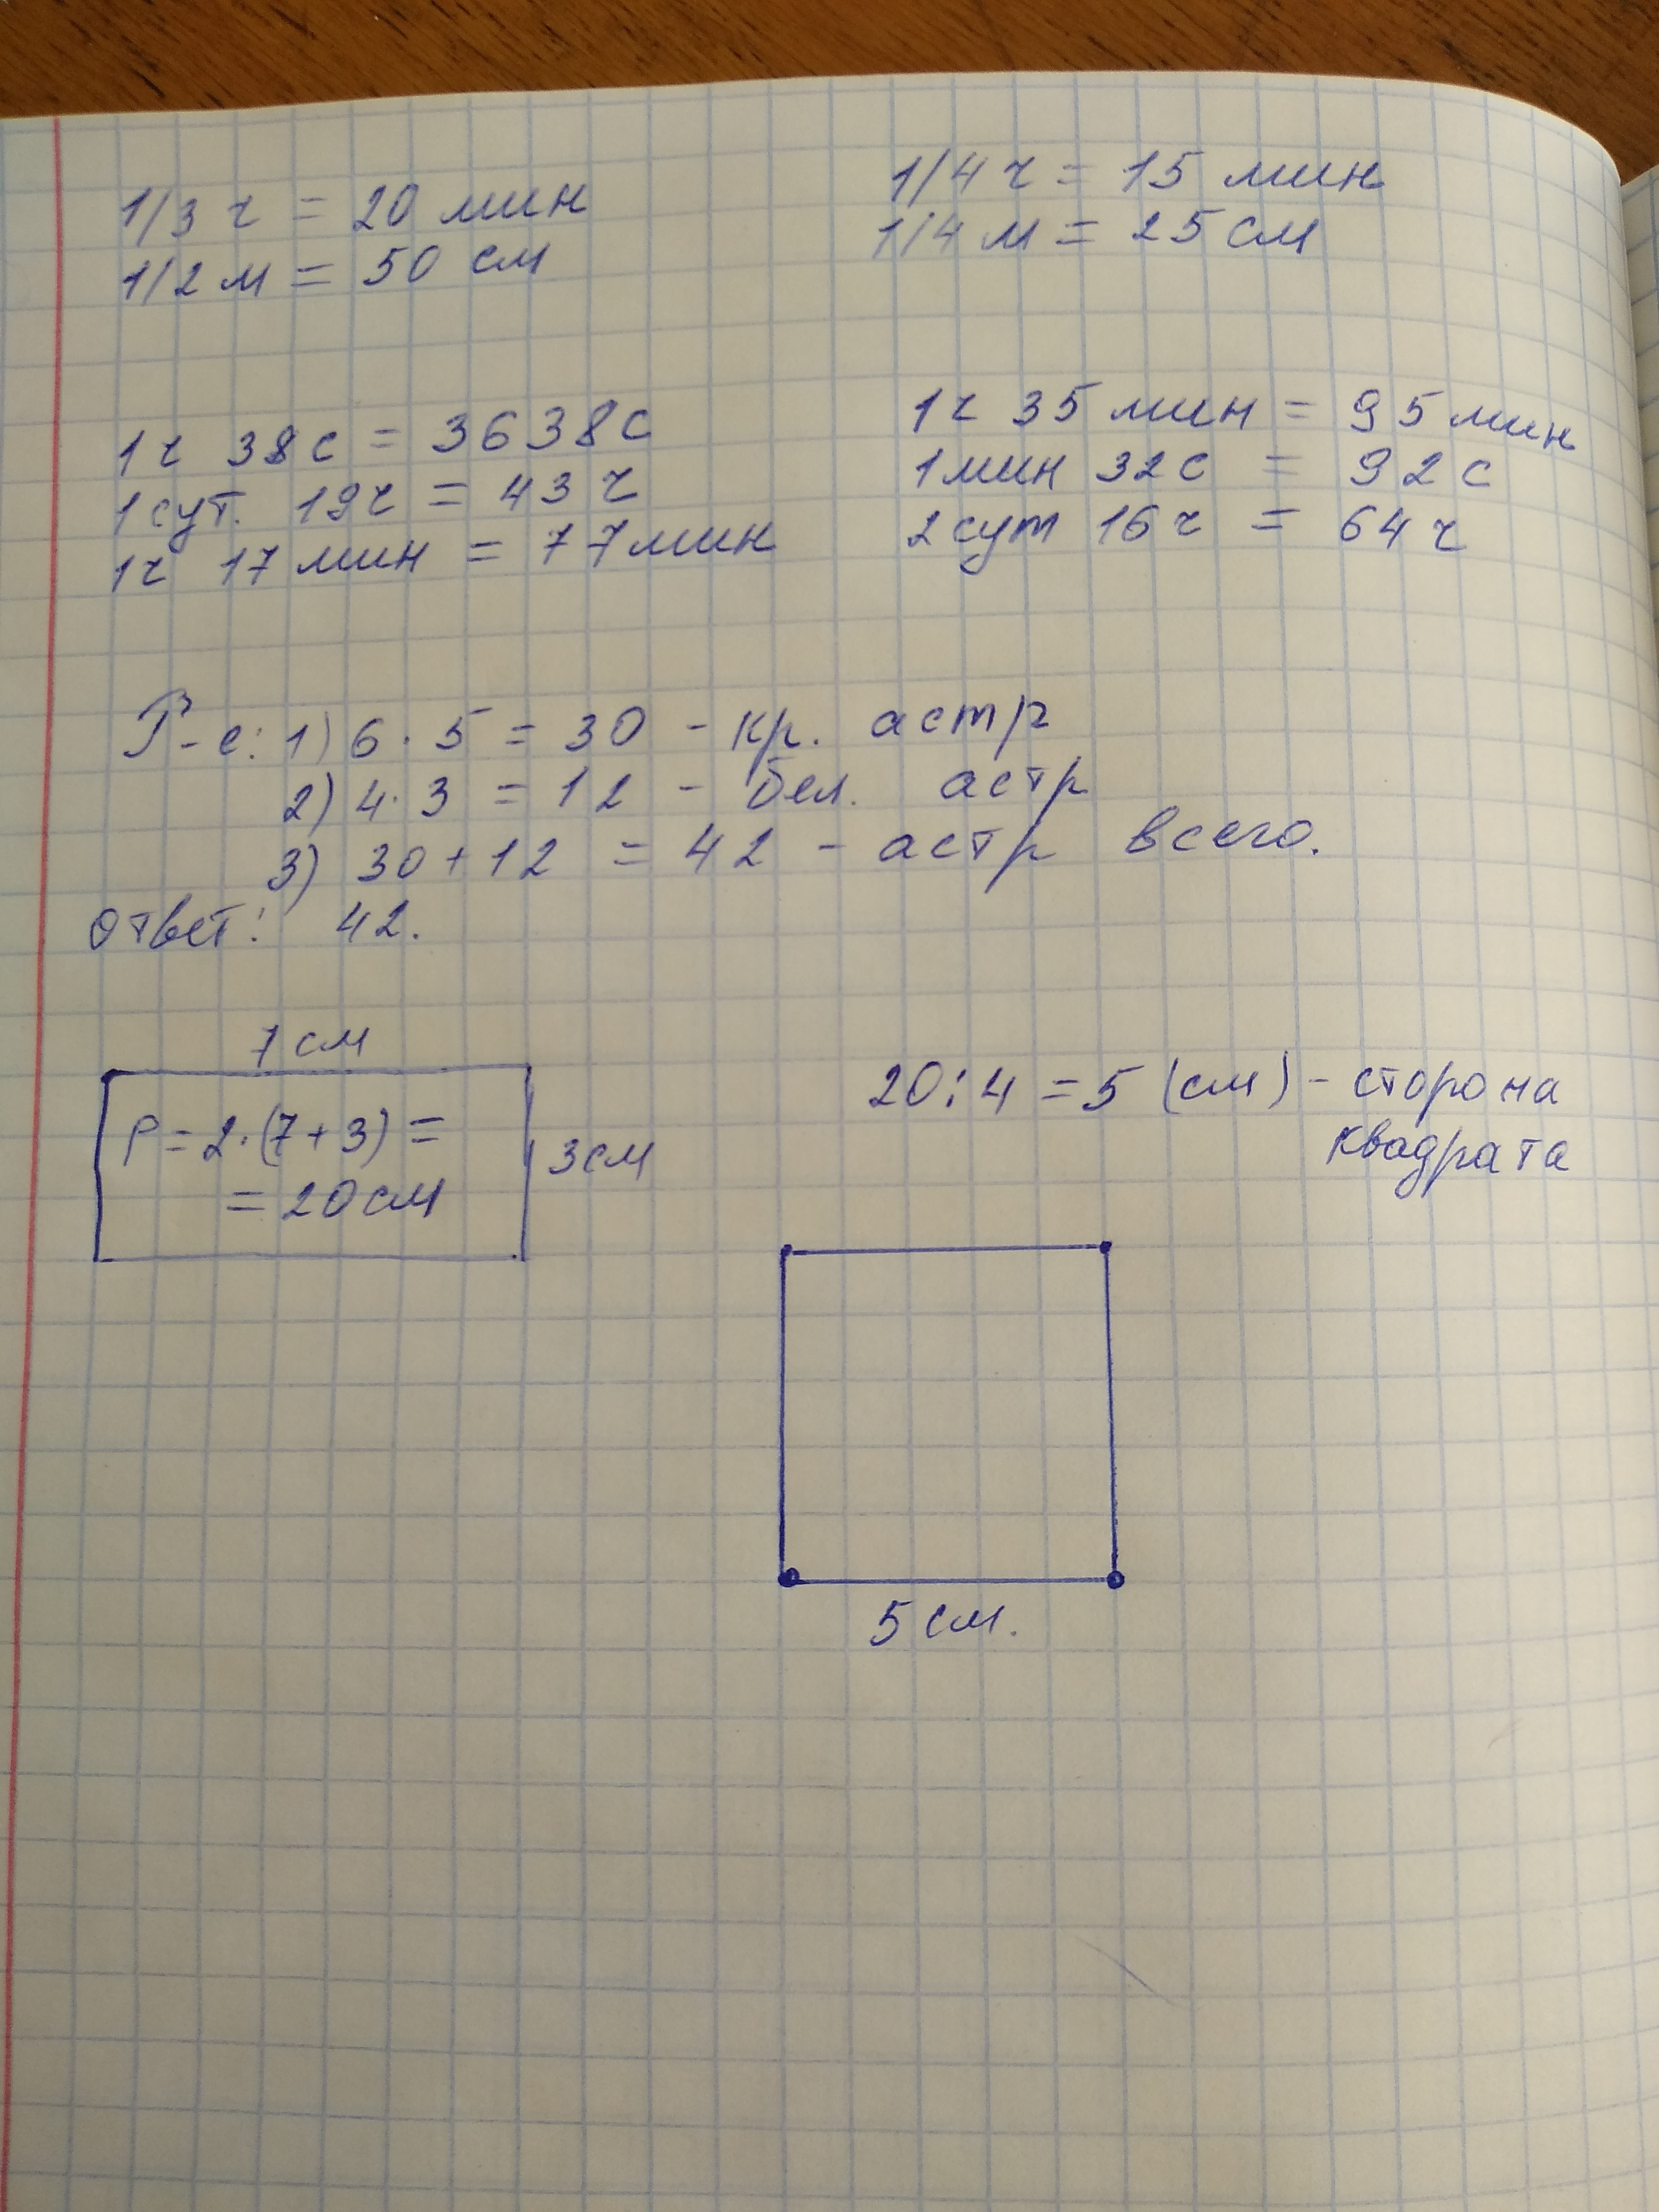 1/3 ч = 20 мин
1/2 м = 50 см
1/4 ч = 15 мин
1/4 м = 25 см
1ч 38с = 3638с
1 сут. 19ч = 43 ч
1ч 17 мин = 77 мин
1ч 35 мин = 95 мин
1 мин 32с = 92 с
2 сут 16ч = 64 ч
Р-е: 1) 6 · 5 = 30 - кр. астр
2) 4 · 3 = 12 - бел. астр
3) 30 + 12 = 42 - астр всего.
Ответ: 42.
7 см
P = 2·(7 + 3) =
= 20 см
3 см
20 : 4 = 5 (см) - сторона
квадрата
5 см.